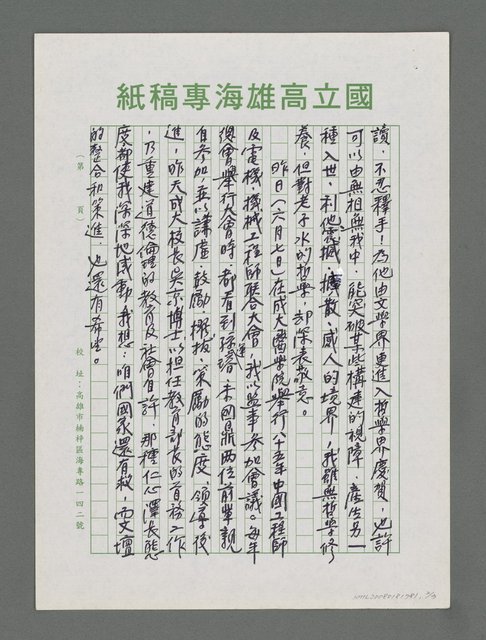 國立高雄海專稿紙
讀，不忍釋手！為他由文學界更進入哲學界慶賀，也許
可以由無相無我中，能突破某些構建的視障，產生另一
種入世、利他、擴散、感人的境界，我雖無哲學修
養，但對老子水的哲學，却深表敬意。
昨日（六月七日）在成大醫學院舉行八十五年中國工程師
及電機、機械工程師聯合大會，我以監事參加會議。每年
總會舉行大會時，都看到孫運璿、李國鼎兩位前輩親
自參加，並以謙虛、鼓勵、提拔、策勵的態度，領導後
進，昨天成大校長吳京博士以担任教育部長的首務工作
，乃重建道德倫理的教育及社會自許，那種仁心澤長態
度都使我深深地感動，我想：咱們國家還有救，而文壇
的整合和策進，也還有希望。
（第　頁）
校址：高雄市楠梓區海專路一四二號